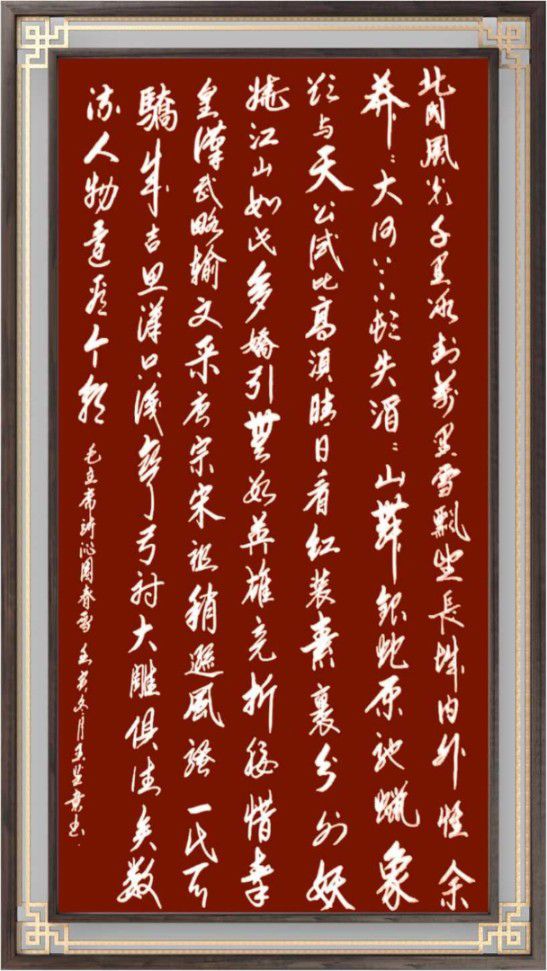 北国風光千里冰封萬里雪飄望長城内外惟余
莽:大河上下頓失滔:山舞銀蛇原馳蠟象
欲与天公試比高須晴日看红装素裹分外妖
娆江山如此多嬌引無数英雄竞折腰惜秦
皇漢武略輸文采唐宗宋祖稍遜風骚一代天
驕成吉思漢只識彎弓射大雕俱往矣数
流人物還看今朝
毛主席詩沁园春雪 癸亥冬月 书